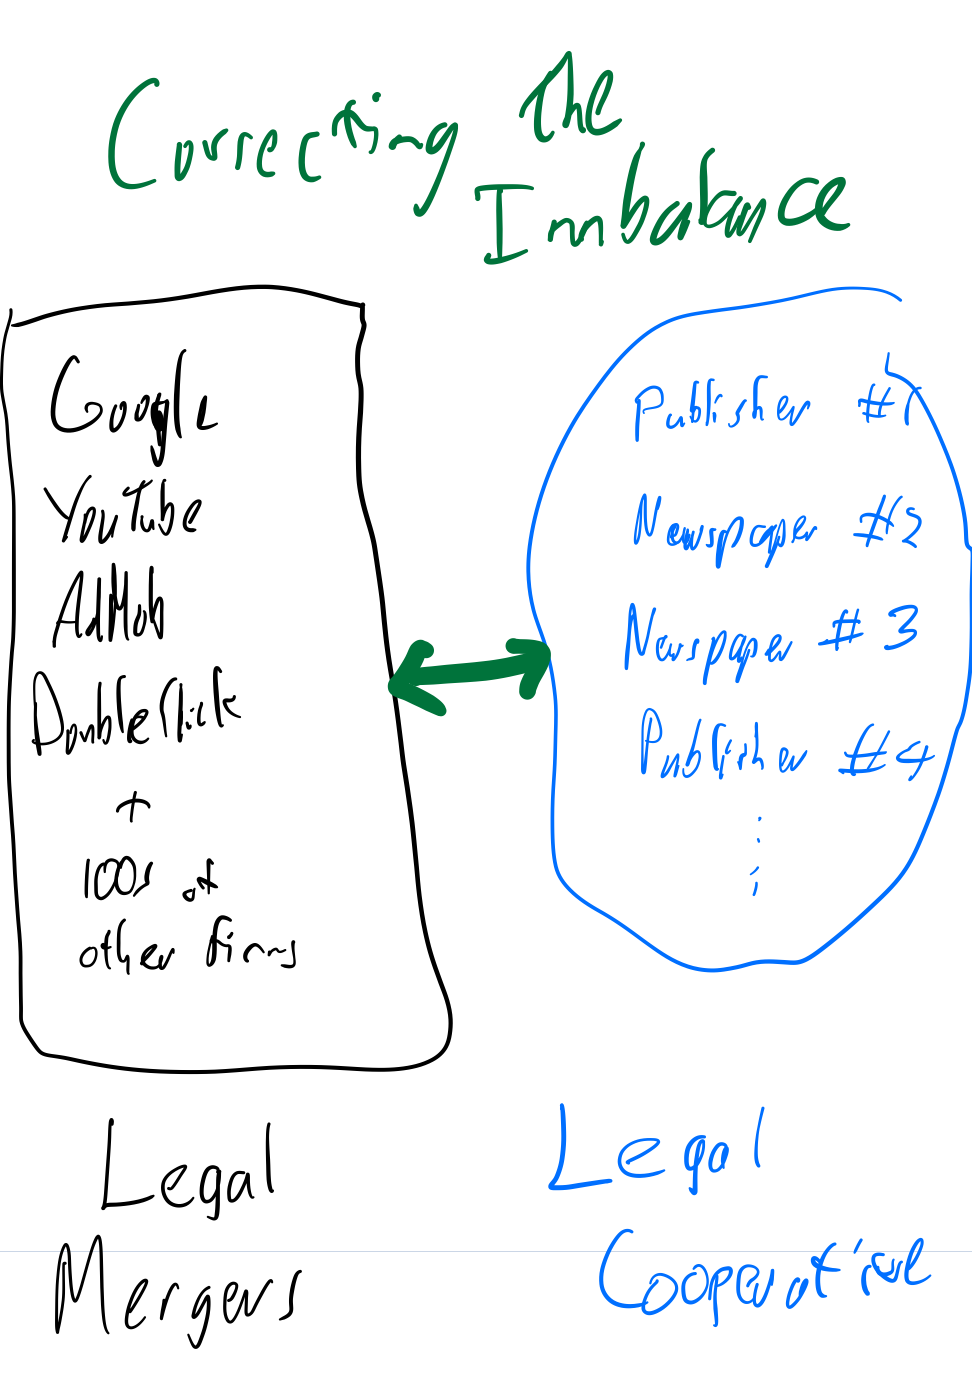 Correcting the
Imbalance
Google
YouTube
AdMob
DoubleClick
+
100s of
other firms
Publisher #1
Newspaper #2
Newspaper #3
Publisher #4
Legal
Mergers
Legal
Cooperative